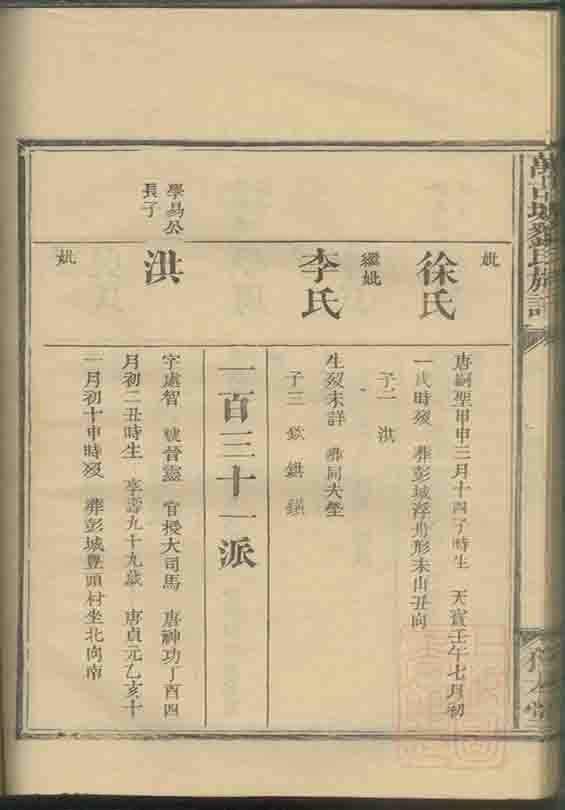 妣
徐氏
唐嗣聖甲申三月十四子時生 天寶壬午七月初
一戌時歿 葬彭城浮舟形未山丑向
子一 洪
繼妣
李氏
生歿未詳 葬同大塋
子三 欽 鉷
一百三十一派
學易公
長子
洪
字處智 號晉靈 官授大司馬 唐神功丁酉四
月初二丑時生 享壽九十九歲 唐貞元乙亥十
一月初十申時歿 葬彭城豐頭村坐北向南
妣
劉氏族